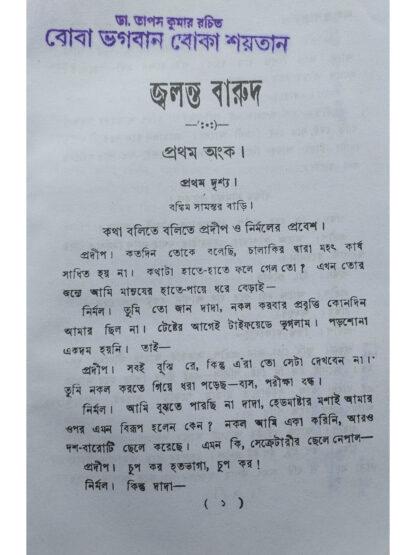 ডাঃ তাপস কুমার রচিত
বোবা ভগবান বোকা শয়তান
জ্বলন্ত বারুদ
—ঃ•ঃ—
প্রথম অংক।
প্রথম দৃশ্য।
বঙ্কিম সামন্তর বাড়ি।
কথা বলিতে বলিতে প্রদীপ ও নির্মলের প্রবেশ।
প্রদীপ। কতদিন তোকে বলেছি, চালাকির দ্বারা মহৎ কার্য
সাধিত হয় না। কথাটা হাতে-হাতে ফলে গেল তো? এখন তোর
জন্যে আমি মানুষের হাতে-পায়ে ধরে বেড়াই—
নির্মল। তুমি তো জান দাদা, নকল করবার প্রবৃত্তি কোনদিন
আমার ছিল না। টেষ্টের আগেই টাইফয়েডে ভুগলাম। পড়শোনা
একদম হয়নি। তাই—
প্রদীপ। সবই বুঝি রে, কিন্তু এঁরা তো সেটা দেখবেন না।
তুমি নকল করতে গিয়ে ধরা পড়েছ—ব্যস, পরীক্ষা বন্ধ।
নির্মল। আমি বুঝতে পারছি না দাদা, হেডমাষ্টার মশাই আমার
ওপর এমন বিরূপ হলেন কেন? নকল আমি একা করিনি, আরও
দশ-বারোটি ছেলে করেছে। এমন কি, সেক্রেটারীর ছেলে নেপাল—
প্রদীপ। চুপ কর হতভাগা, চুপ কর!
নির্মল। কিন্তু দাদা—
( ১ )